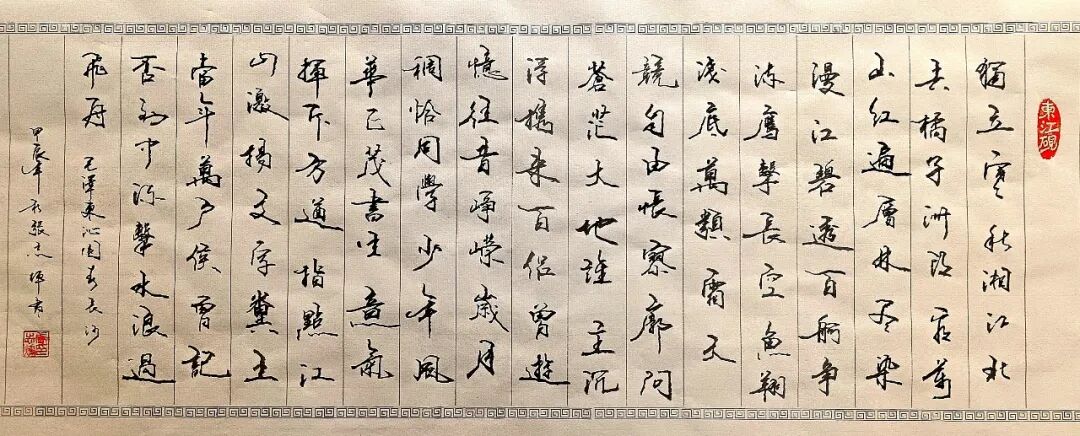 東江硯
獨立寒秋湘江北
去橘子洲頭看萬
山紅遍層林盡染
漫江碧透百舸争
流鷹擊長空魚翔
淺底萬類霜天
競自由悵寥廓問
蒼茫大地誰主沉
浮攜來百侣曾遊
憶往昔崢嶸歲月
稠恰同學少年風
華正茂書生意氣
揮斥方遒指點江
山激揚文字糞土
當年萬户侯曾記
否到中流擊水浪遏
飛舟
毛澤東沁園春長沙
甲辰年張志坪書